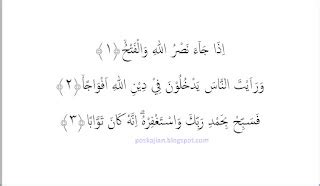 اِذَا جَآءَ نَصْرُ اللّٰهِ وَالْفَتْحُ ﴿١﴾
وَرَاَيْتَ النَّاسَ يَدْخُلُوْنَ فِيْ دِيْنِ اللّٰهِ اَفْوَاجًا ﴿٢﴾
فَسَبِّحْ بِحَمْدِ رَبِّكَ وَاسْتَغْفِرْهُ ۗ اِنَّهٗ كَانَ تَوَّابًا ﴿٣﴾
poskajian.blogspot.com